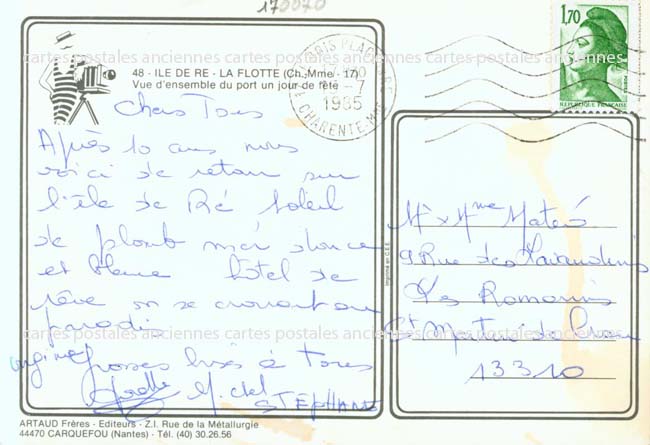 170070
1,70
REPUBLIQUE FRANÇAISE
48 - ILE DE RE - LA FLOTTE (Ch.-Mme - 17)
Vue d'ensemble du port un jour de fête
1985
CHARENTE-MME
cartes postales anciennes cartes postales anciennes cartes postales anciennes
Chers Tous
Après 10 ans nous
voici de retour sur
l'île de Ré soleil
de plomb mer douce
et bleue hôtel de
rêve on se croirait au
paradis
Grosses bises à tous
Michel
STEPHANE
Imprimé en C.E.E.
Mr & Mme Mateo
9 Rue des Lavandins
Les Romarins
St Martin de Crau
13310
cartes postales anciennes cartes postales anciennes cartes postales anciennes
ARTAUD Frères - Editeurs - Z.I. Rue de la Métallurgie
44470 CARQUEFOU (Nantes) - Tél. (40) 30.26.56